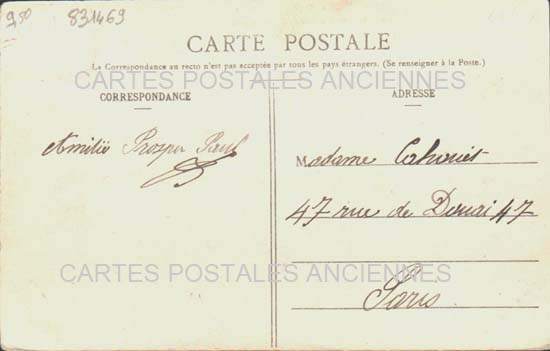 9,50 831469
CARTE POSTALE
La Correspondance au recto n'est pas acceptée par tous les pays étrangers. (Se renseigner à la Poste.)
CARTES POSTALES ANCIENNES
CORRESPONDANCE
ADRESSE
Amitié Prosper Paul
Madame
47 rue de Douai 47
CARTES POSTALES ANCIENNES
Paris